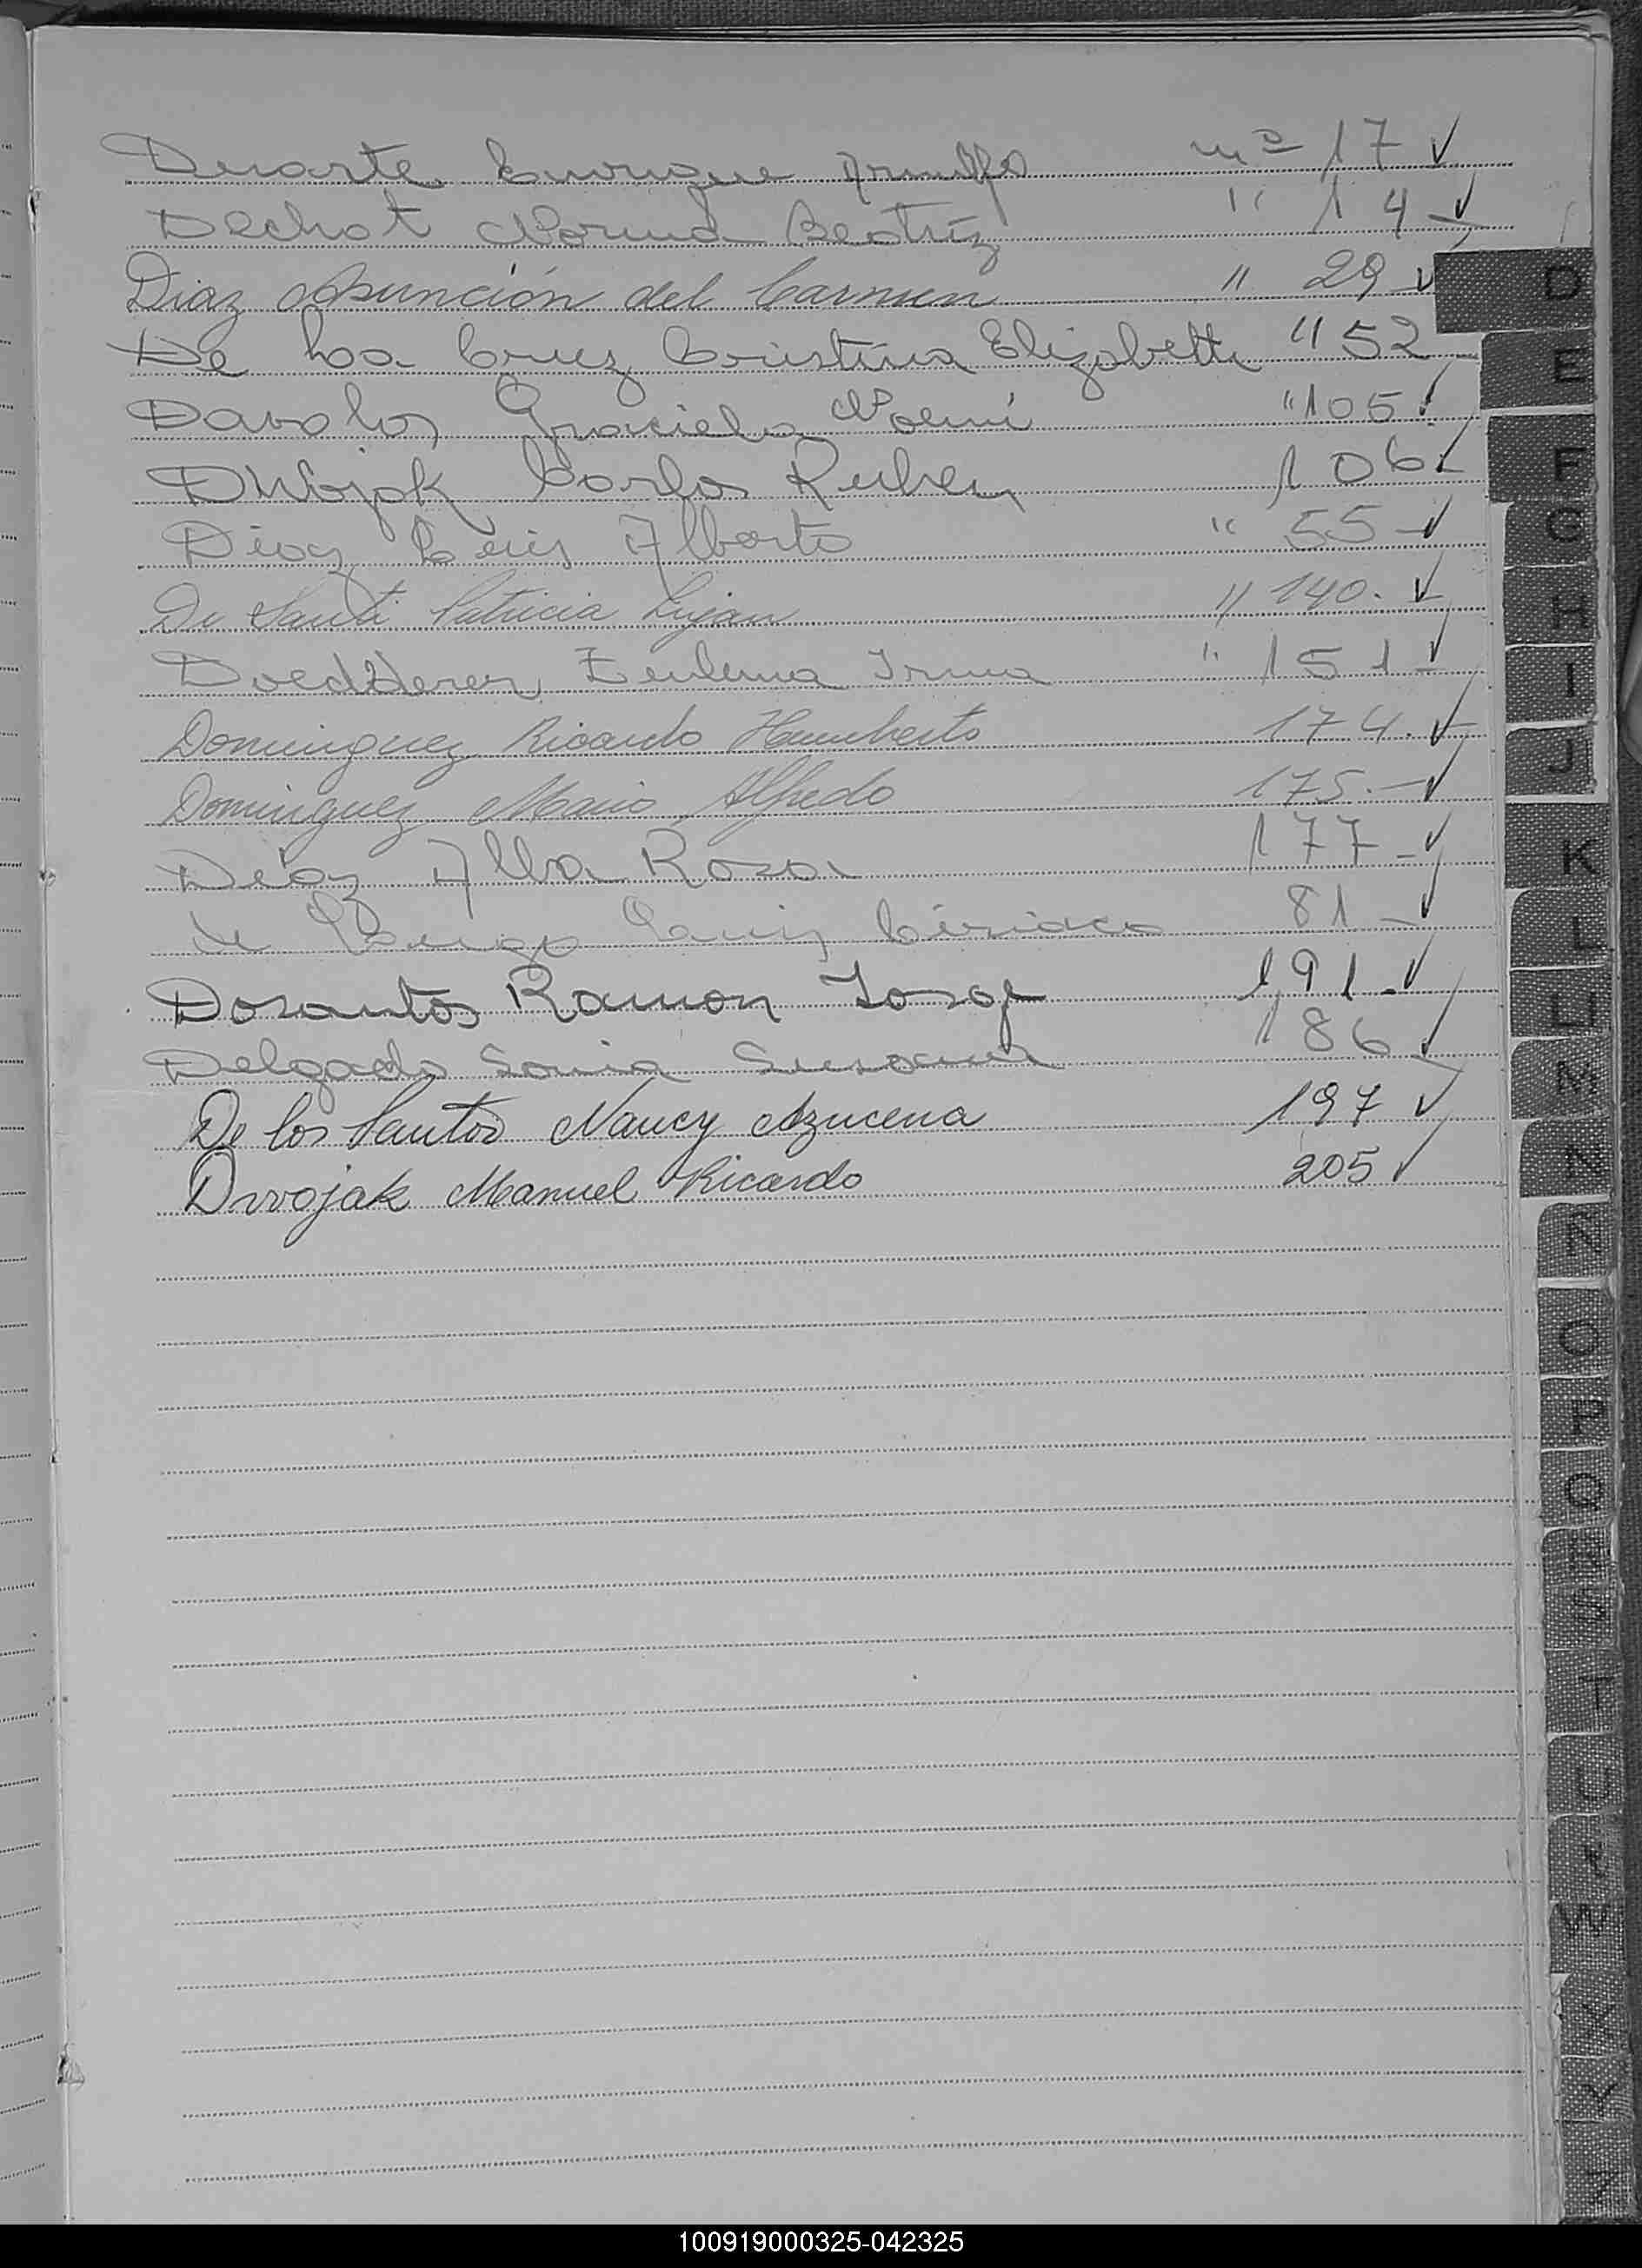 Duarte Enrique nº 17 ✓
Dechat Norma Beatriz " 14 - ✓
Diaz Asunción del Carmen " 29 - ✓
De La Cruz Cristina Elizabeth " 52 -
Davalos Graciela Noemi " 105 ✓
Dwojak Carlos Ruben 106 - ✓
Diaz Luis Alberto " 55 - ✓
De Santi Patricia Lujan " 140. ✓
Zulema Irma " 151 - ✓
Dominguez Ricardo Humberto 174. ✓
Dominguez Mario Alfredo 175. - ✓
Diaz Alba Rosa 177 - ✓
de Luis Ciriaco 81 - ✓
Dosantos Ramon Jorge 191 - ✓
Delgado Sonia Susana 186 ✓
De los Santos Nancy Azucena 197 ✓
Dwojak Manuel Ricardo 205 ✓
D
E
F
G
H
I
J
K
L
LL
M
N
Ñ
O
P
Q
R
S
T
U
V
W
X
Y
Z
100919000325-042325